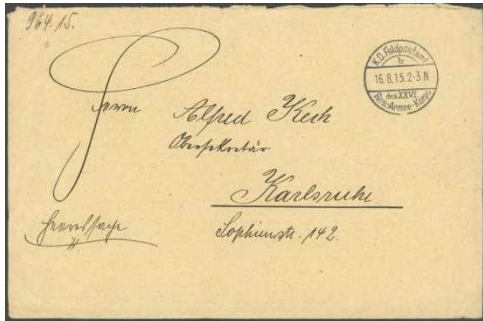 964. 15.
K.D. Feldpostamt
b
16.8.15.2-3N
des XXVI.
Res.-Armee-Korps
Herrn
Alfred Kech
Obersekretär
Karlsruhe
Heeressache
Sophienstr. 142.